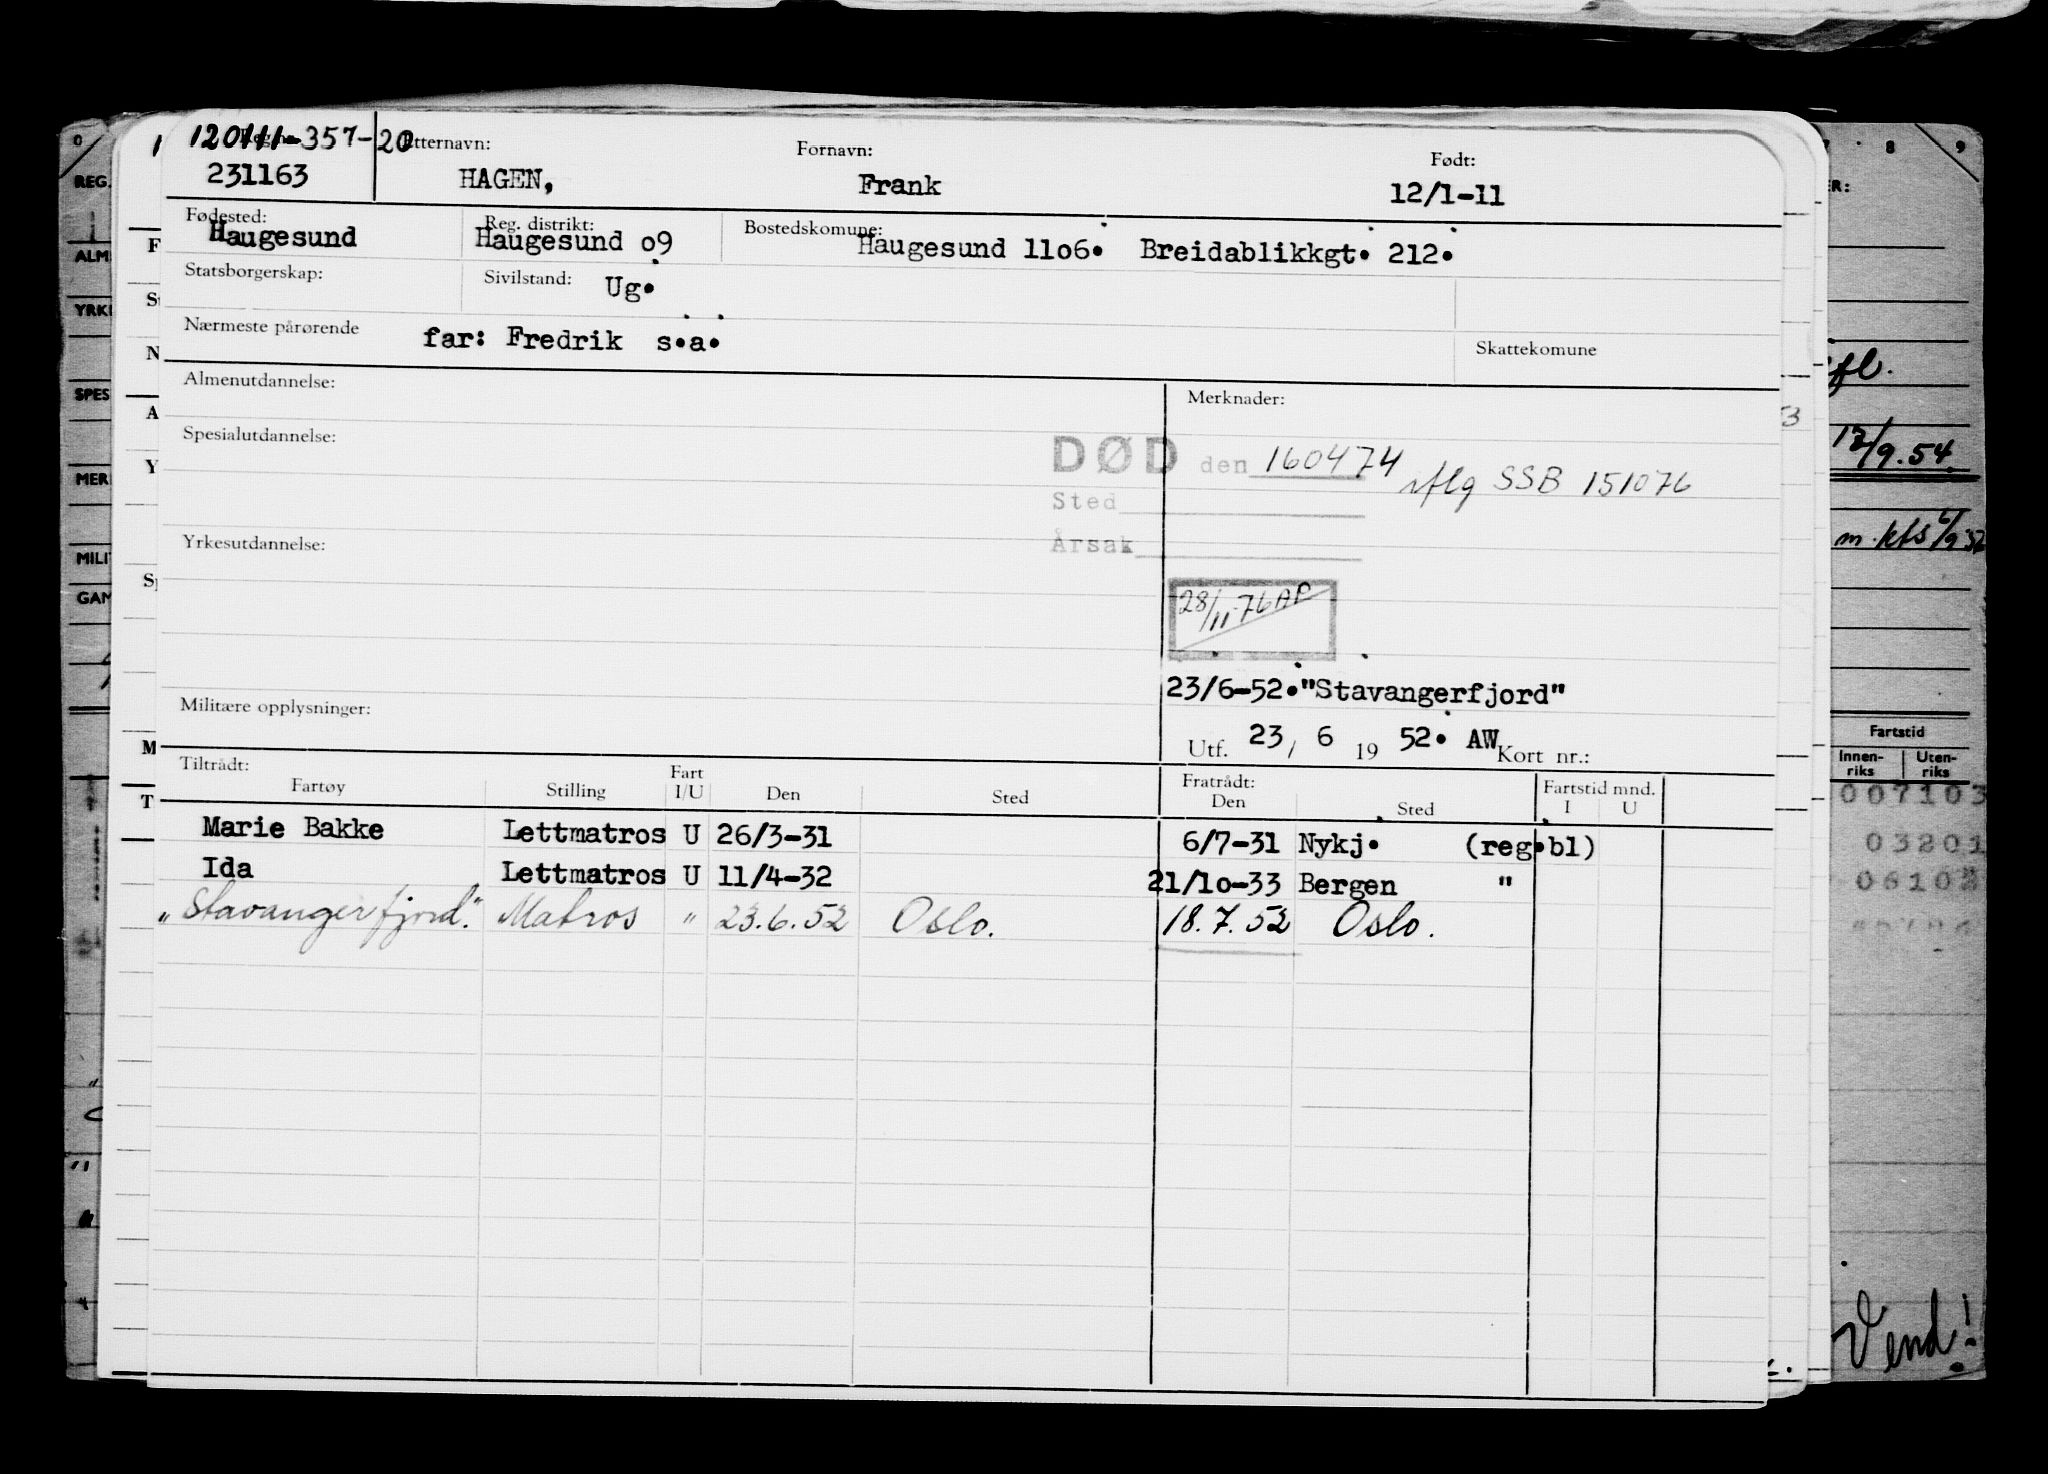 120111-357-20 Etternavn: Fornavn: Født:
231163 HAGEN, Frank 12/1-11
Fødested: Reg. distrikt: Bostedskomune:
Haugesund Haugesund o9 Haugesund 11o6. Breidablikkgt. 212.
Statsborgerskap: Sivilstand: Ug.
Nærmeste pårørende far: Fredrik s.a. Skattekomune
Almenutdannelse: Merknader:
Spesialutdannelse: DØD den 160474 iflg SSB 151076
Sted
Yrkesutdannelse: Årsak
28/11-76 AP
23/6-52."Stavangerfjord"
Militære opplysninger: Utf. 23 / 6 19 52. AW Kort nr.:
Tiltrådt: Fratrådt: Fartstid mnd.
Fartøy Stilling Fart I/U Den Sted Den Sted I U
Marie Bakke Lettmatros U 26/3-31 6/7-31 Nykj. (reg.bl)
Ida Lettmatros U 11/4-32 21/1o-33 Bergen "
"Stavangerfjord". Matros " 23.6.52 Oslo. 18.7.52 Oslo.
0
REG.
ALM
YRK
SPES
MER
MILI
GAM
F
N
A
Y
M
T
8 9
R:
fl.
3
12/9.54.
m. kfs 6/9 52
Fartstid
Innen-riks Uten-riks
007103
03201
Vend!